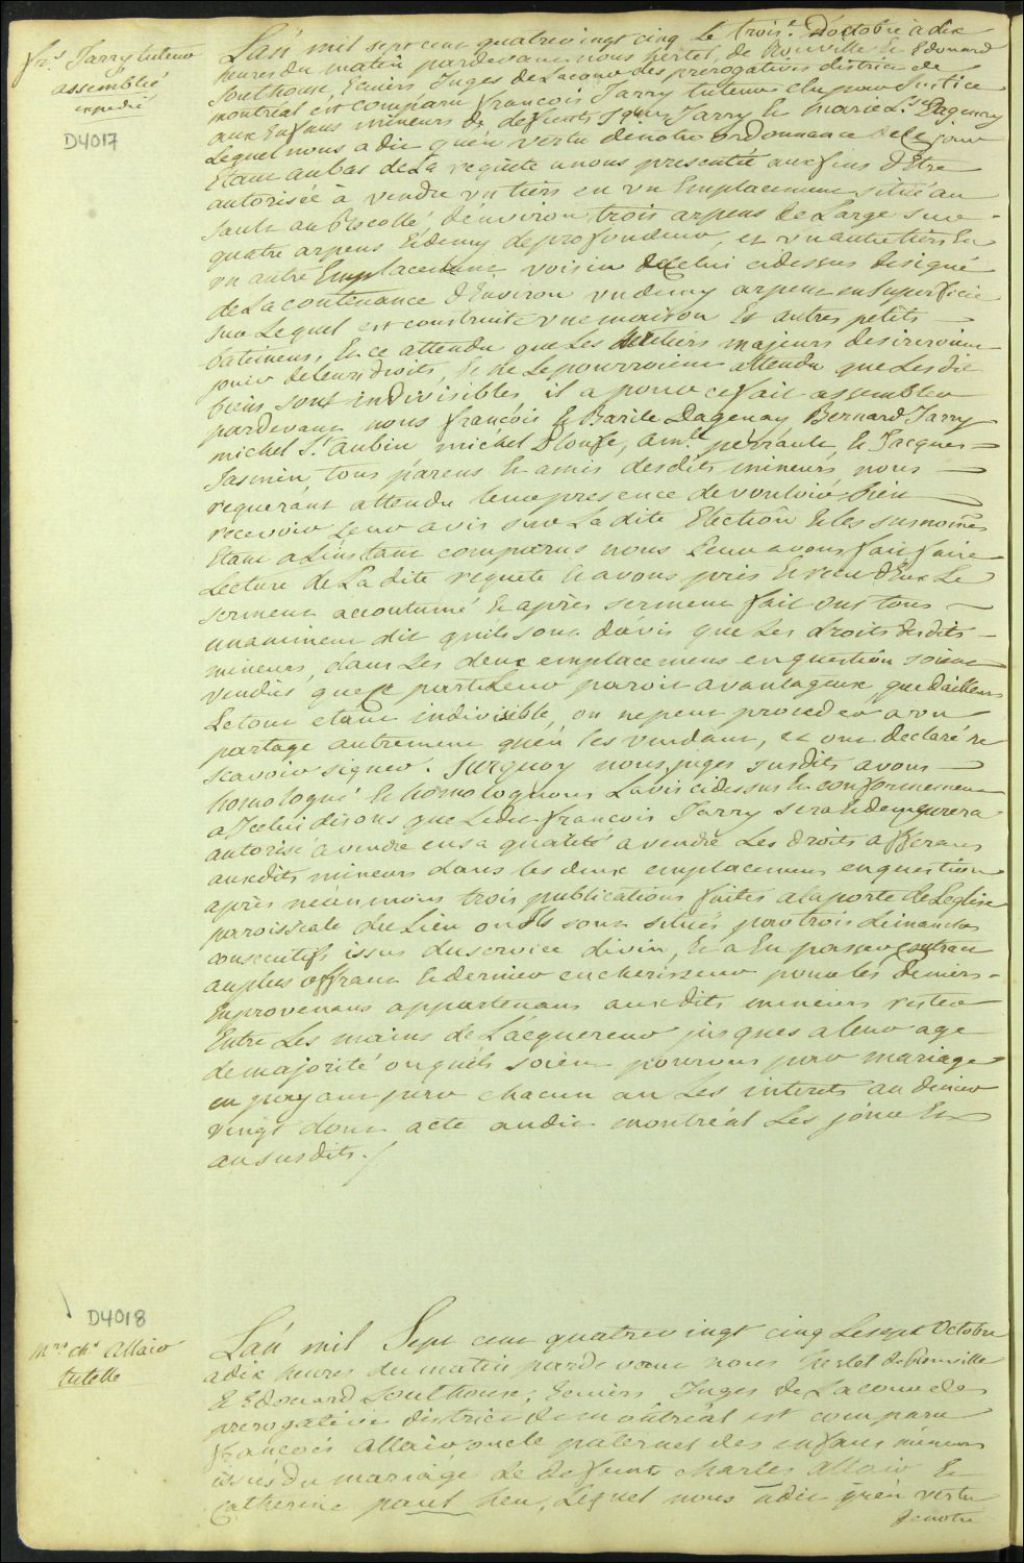 frs. Jarry tuteur
assemblée
expedié
D4017
Lan mil sept cent quatrevingt cinq Le trois e. Doctobre à dix
heures du matin pardevant nous hertel de Rouville & Edouard
Southouse, Ecuiers Juges de La cour des prerogatives district de
montréal est comparu françois Jarry tuteur elu par Justice
aux Enfans mineurs de defunts Jarry & marie Ls. Dagenay
Lequel nous a dit quen vertu de notre ordonnance de ce jour
Etant au bas de La requête a nous presentée aux fins dEtre
autorisée à vendre un tiers en un Emplacement situé au
Sault au Récollé denviron trois arpens de Large sur
quatre arpens & demy de profondeur, et un autre tiers En
un autre Emplacement voisin de celui cidessus designé
de La contenance dEnviron un demy arpent en superficie
sur Lequel est construite une maison & autres petits
batimens, & ce attendu que Les heritiers majeurs desireroient
jouir de leurs droits, & ne Le pourroient attendu que Lesdits
biens sont indivisibles, il a pour ce fait assembler
pardevant nous françois & Basile Dagenay Bernard Jarry
michel St. aubin michel Plouffe, amb.le perrault, & Jacques
Jasmin, tous parens & amis desdits mineurs nous
requerant attendu leur presence de vouloir bien
recevoir leur avis sur La dite Election & les susnomés
Etant a Linstant comparus nous Leur avons fait faire
Lecture de La dite requete & avons pris & recu dEux Le
serment accoutumé & après serment fait ont tous
unanimem dit quils sont davis que Les droits desdits
mineurs, dans Les deux emplacemens en question soient
vendus que ce parti Leur paroit avantageux que dailleurs
Le tout etant indivisible, on ne peut proceder a un
partage autrement quen les vendant, et ont declaré ne
scavoir signer. Surquoy nous juges susdits avons
homologué & homologuons Lavis cidessus & conformement
a Icelui disons que Ledit francois Jarry sera & demeurera
autorisé a vendre en sa qualité a vendre Les droits afferans
auxdits mineurs dans les deux emplacemens en question
après néanmoins trois publications faites a la porte de Leglise
paroissiale du Lieu ou ils sont situés par trois dimanches
consecutifs issus du service divin, & a En passer contrat
au plus offrant & dernier encherisseur pour les deniers
En provenans appartenans auxdits mineurs rester
Entre Les mains de Lacquereur jusques a leur age
de majorité ou quils soient pourvus par mariage
en payant par chacun an Les interets au denier
vingt dont acte audit montréal Les jour & an
an susdits./
D4018
Mrs. chs. Allair
tutelle
Lan mil Sept cent quatrevingt cinq Le sept Octobre
a dix heures du matin pardevant nous hertel de Rouville
& Edouard Southouse, Ecuiers Juges de La cour des
prerogatives district de montréal est comparu
françois Allair oncle paternel des enfans mineurs
issus du mariage de defunt charles allair &
Catherine Lequel nous a dit quen vertu
de notre